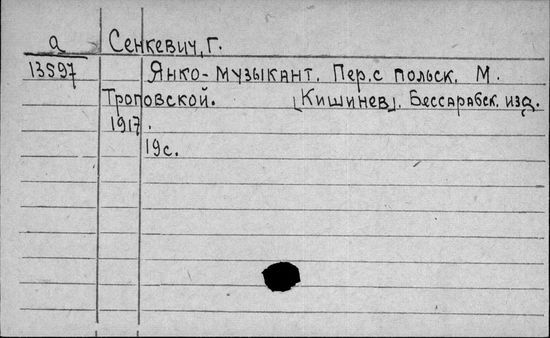 а Сенкевич, Г.
13597 Янко-музыкант. Пер. с польск. М.
Троповской. [Кишинев]. Бессарабск. изд.
1917.
19с.